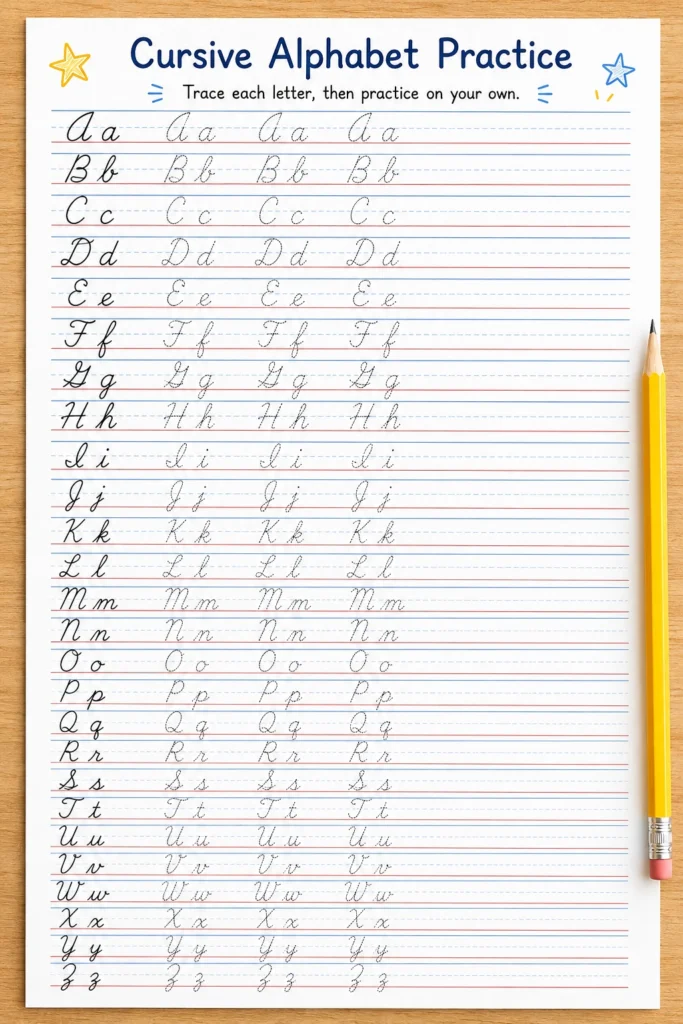 Cursive Alphabet Practice
Trace each letter, then practice on your own.
A a A a A a A a
B b B b B b B b
C c C c C c C c
D d D d D d D d
E e E e E e E e
F f F f F f F f
G g G g G g G g
H h H h H h H h
I i I i I i I i
J j J j J j J j
K k K k K k K k
L l L l L l L l
M m M m M m M m
N n N n N n N n
O o O o O o O o
P p P p P p P p
Q q Q q Q q Q q
R r R r R r R r
S s S s S s S s
T t T t T t T t
U u U u U u U u
V v V v V v V v
W w W w W w W w
X x X x X x X x
Y y Y y Y y Y y
Z z Z z Z z Z z